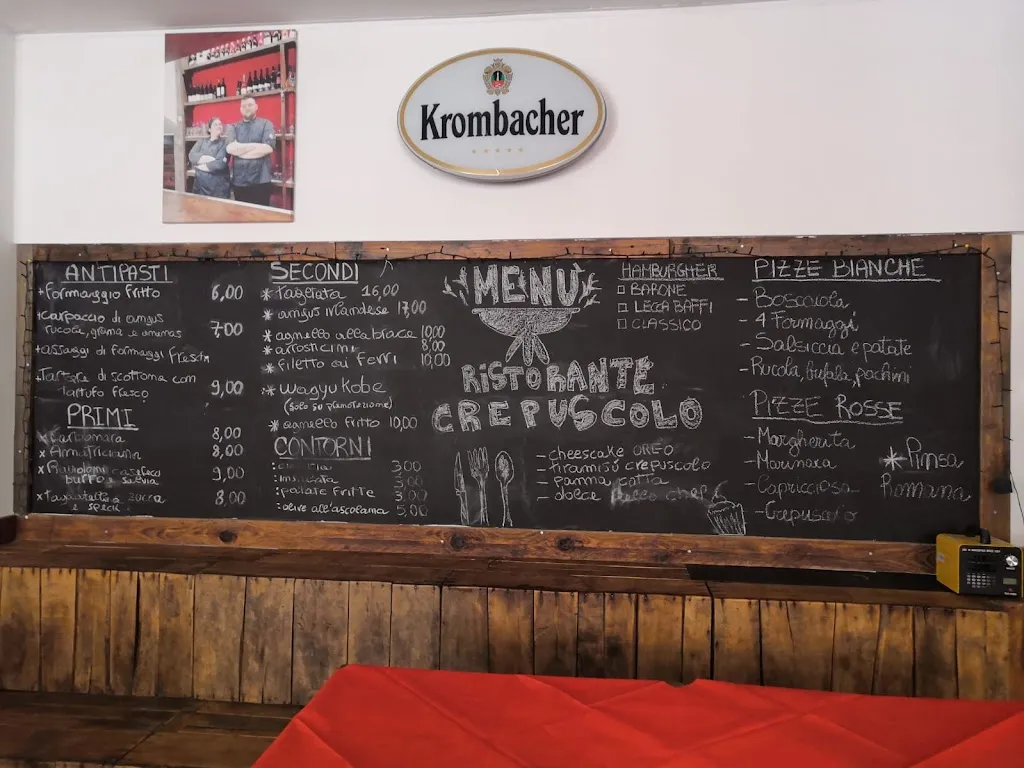 Krombacher
ANTIPASTI
formaggio fritto 6,00
carpaccio di angus
rucola, grana e ananas 7,00
assaggi di formaggi freschi
Tartara di scottona con
tartufo fresco 9,00
PRIMI
Carbonara 8,00
Amatriciana 8,00
burro e salvia 9,00
zucca 8,00
SECONDI
* tagliata 16,00
* angus irlandese 17,00
* agnello alla brace 10,00
* arrosticini 8,00
* filetto ai ferri 10,00
* wagyu kobe
(solo su prenotazione)
* agnello fritto 10,00
CONTORNI
3,00
3,00
: patate fritte 3,00
: olive all'ascolana 5,00
MENÙ
RISTORANTE
CREPUSCOLO
- cheescake OREO
- tiramisù crepuscolo
- panna cotta
- dolce
HAMBURGHER
□ BARONE
□ LECCA BAFFI
□ CLASSICO
PIZZE BIANCHE
- Boscaiola
- 4 Formaggi
- Salsiccia e patate
- Rucola, bufala, pachini
PIZZE ROSSE
- Margherita
- Marinara
- Capricciosa
* Pinsa
Romana